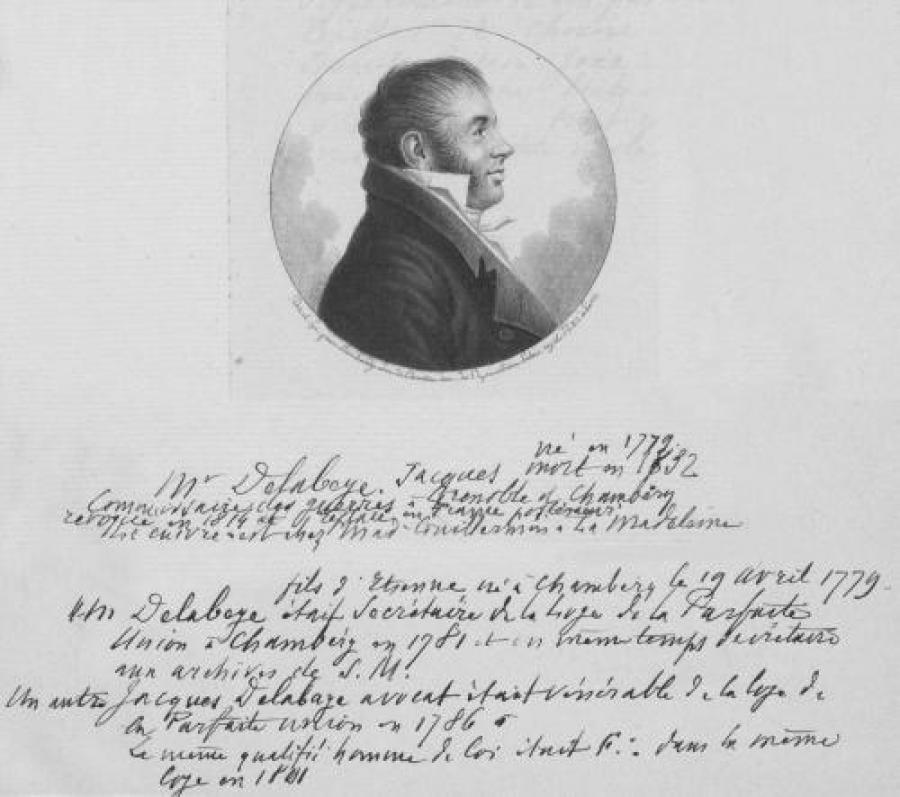 né en 1779
Mr Delabeye. Jacques mort en 1832
Commissaire des guerres à Grenoble et Chambéry
révoqué en 1814 et en France
cuivre est chez Mad à La Madeleine
fils d'Etienne né à Chambery le 19 avril 1779.
Un Delabeye était Secrétaire de la Loge de la Parfaite
Union à Chambéry en 1781 et en même temps secrétaire
aux archives de S. M.
Un autre Jacques Delabaye avocat était vénérable de la loge de
la Parfaite union en 1786
Le même qualifié homme de loi était F∴ dans la même
loge en 1801